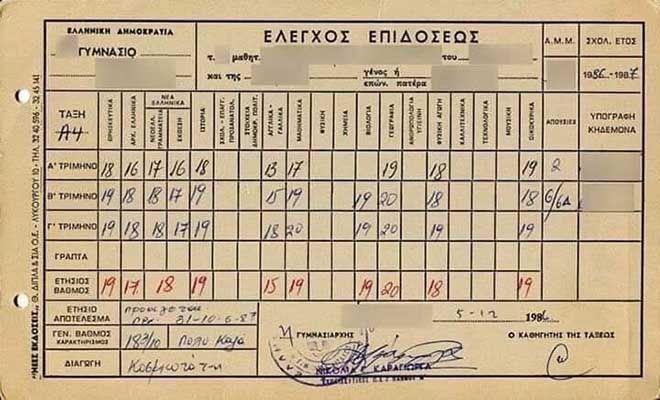 ΕΛΛΗΝΙΚΗ ΔΗΜΟΚΡΑΤΙΑ
ΓΥΜΝΑΣΙΟ
ΕΛΕΓΧΟΣ ΕΠΙΔΟΣΕΩΣ
τ. μαθητ. του
και της γένος ή επών. πατέρα
Α.Μ.Μ.
ΣΧΟΛ. ΕΤΟΣ
1986-1987
ΤΑΞΗ
Α4
ΘΡΗΣΚΕΥΤΙΚΑ
ΑΡΧ. ΕΛΛΗΝΙΚΑ
ΝΕΑ ΕΛΛΗΝΙΚΑ
ΝΕΟΕΛΛ. ΓΡΑΜΜΑΤΕΙΑ
ΕΚΘΕΣΗ
ΙΣΤΟΡΙΑ
ΣΧΟΛ. - ΕΠΑΓΓ. ΠΡΟΣΑΝΑΤΟΛ.
ΣΤΟΙΧΕΙΑ ΔΗΜΟΚΡ. ΠΟΛΙΤ.
ΑΓΓΛΙΚΑ - ΓΑΛΛΙΚΑ
ΜΑΘΗΜΑΤΙΚΑ
ΦΥΣΙΚΗ
ΧΗΜΕΙΑ
ΒΙΟΛΟΓΙΑ
ΓΕΩΓΡΑΦΙΑ
ΑΝΘΡΩΠΟΛΟΓΙΑ ΥΓΙΕΙΝΗ
ΦΥΣΙΚΗ ΑΓΩΓΗ
ΚΑΛΛΙΤΕΧΝΙΚΑ
ΤΕΧΝΟΛΟΓΙΑ
ΜΟΥΣΙΚΗ
ΟΙΚΟΚΥΡΙΚΑ
ΑΠΟΥΣΙΕΣ
ΥΠΟΓΡΑΦΗ ΚΗΔΕΜΟΝΑ
Α' ΤΡΙΜΗΝΟ 18 16 17 16 18 13 17 19 18 19 2
Β' ΤΡΙΜΗΝΟ 19 18 18 17 19 15 19 19 20 18 18
Γ' ΤΡΙΜΗΝΟ 19 18 18 17 19 18 20 19 20 19 19
ΓΡΑΠΤΑ
ΕΤΗΣΙΟΣ ΒΑΘΜΟΣ 19 17 18 19 15 19 19 20 18 19
ΕΤΗΣΙΟ ΑΠΟΤΕΛΕΣΜΑ
ΓΕΝ. ΒΑΘΜΟΣ ΧΑΡΑΚΤΗΡΙΣΜΟΣ Πολύ Καλά
ΔΙΑΓΩΓΗ Κοσμιοτάτη
5-12 1986
Η ΓΥΜΝΑΣΙΑΡΧΗΣ
Ο ΚΑΘΗΓΗΤΗΣ ΤΗΣ ΤΑΞΕΩΣ
ΚΑΡΑΓΙΩΡΓΑ